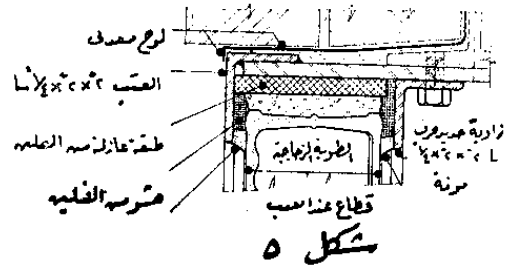 لوح معدنى
العتب ٢ًx ٢ًx ¼ً L
طبقة عازلة من الفلين
حشو من الفلين
الطوبة الزجاجية
زاوية حديد حرف
L ٢ًx ٢ًx ¼ً
مونة
قطاع عند العتب
شكل ٥